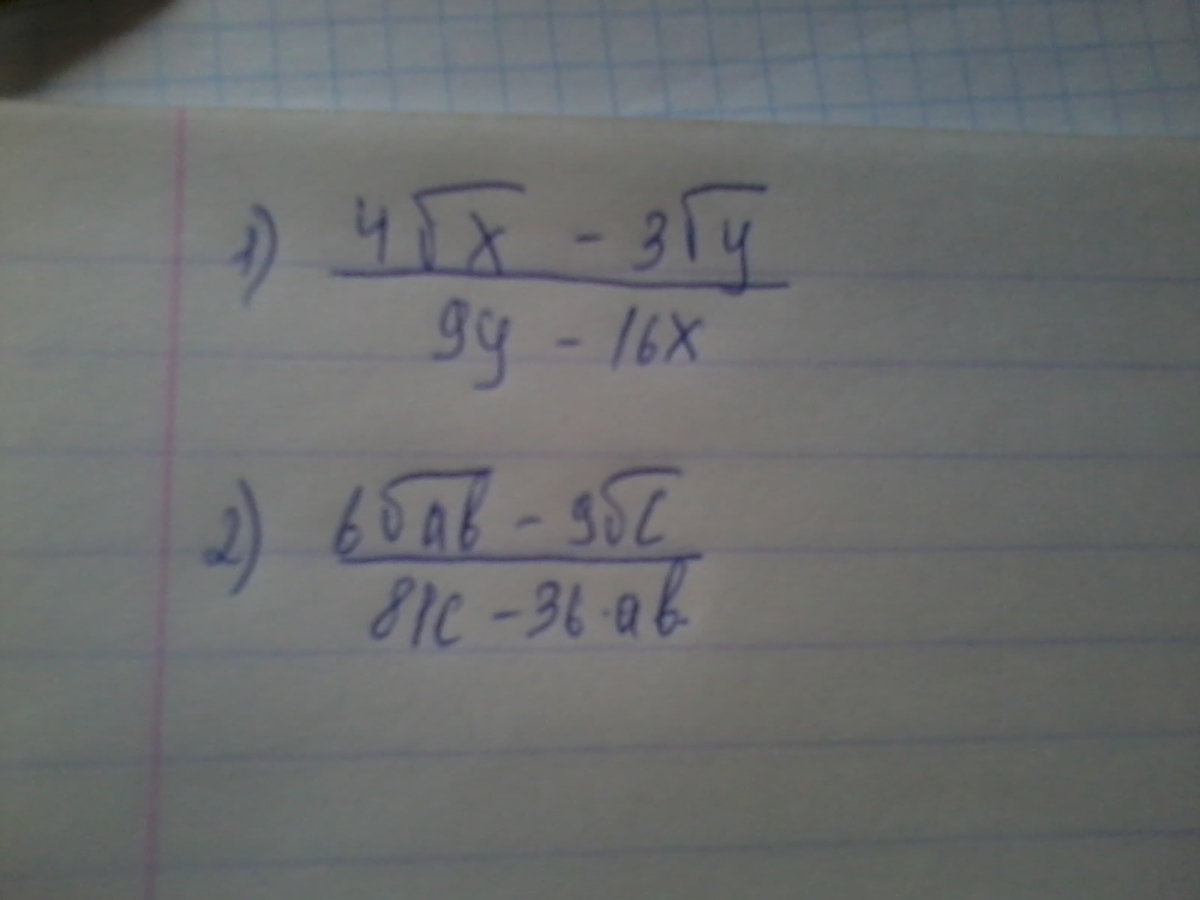 1) 4√x - 3√y
9y - 16x
2) 6√ab - 9√c
81c - 36·ab